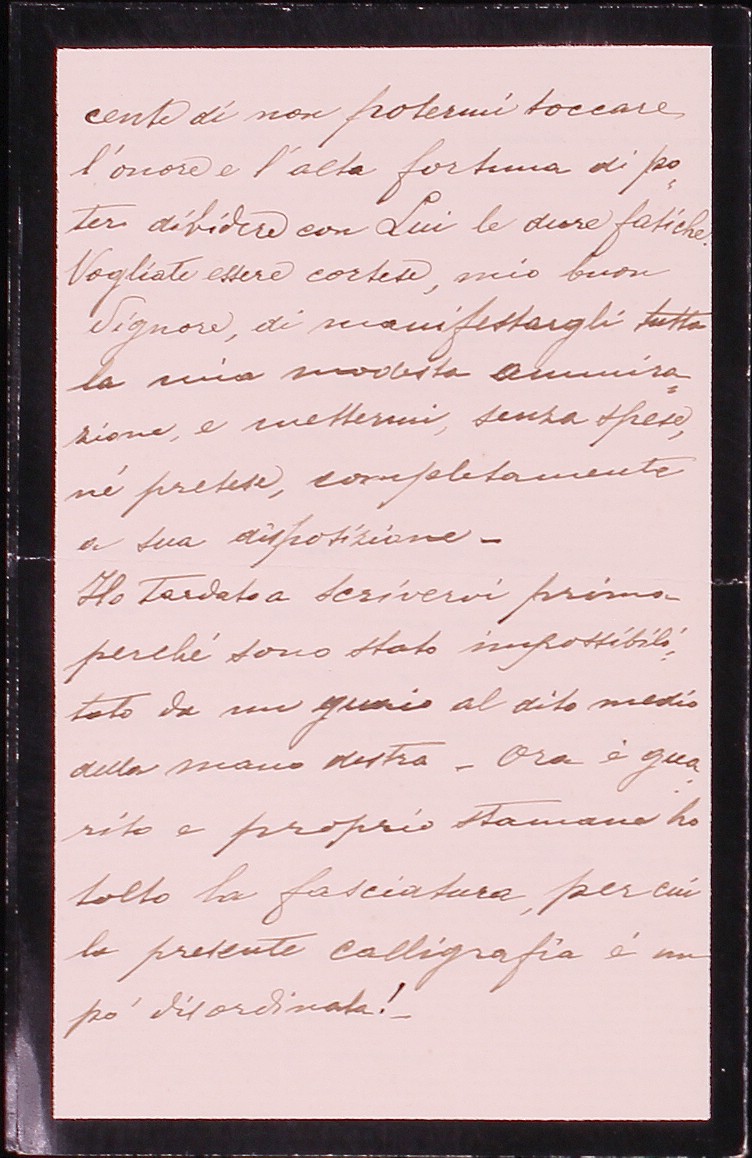 cente di non potermi toccare
l'onore e l'alta fortuna di po=
ter dividere con Lui le dure fatiche.
Vogliate essere cortese, mio buon
Signore, di manifestargli tutta
la mia modesta ammira=
zione, e mettermi, senza spese,
né pretese, completamente
a sua disposizione –
Ho tardato a scrivervi prima
perché sono stato impossibili=
tato da un guaio al dito medio
della mano destra – Ora è gua=
rito e proprio stamane ho
tolto la fasciatura, per cui
la presente calligrafia è un
po' disordinata! –